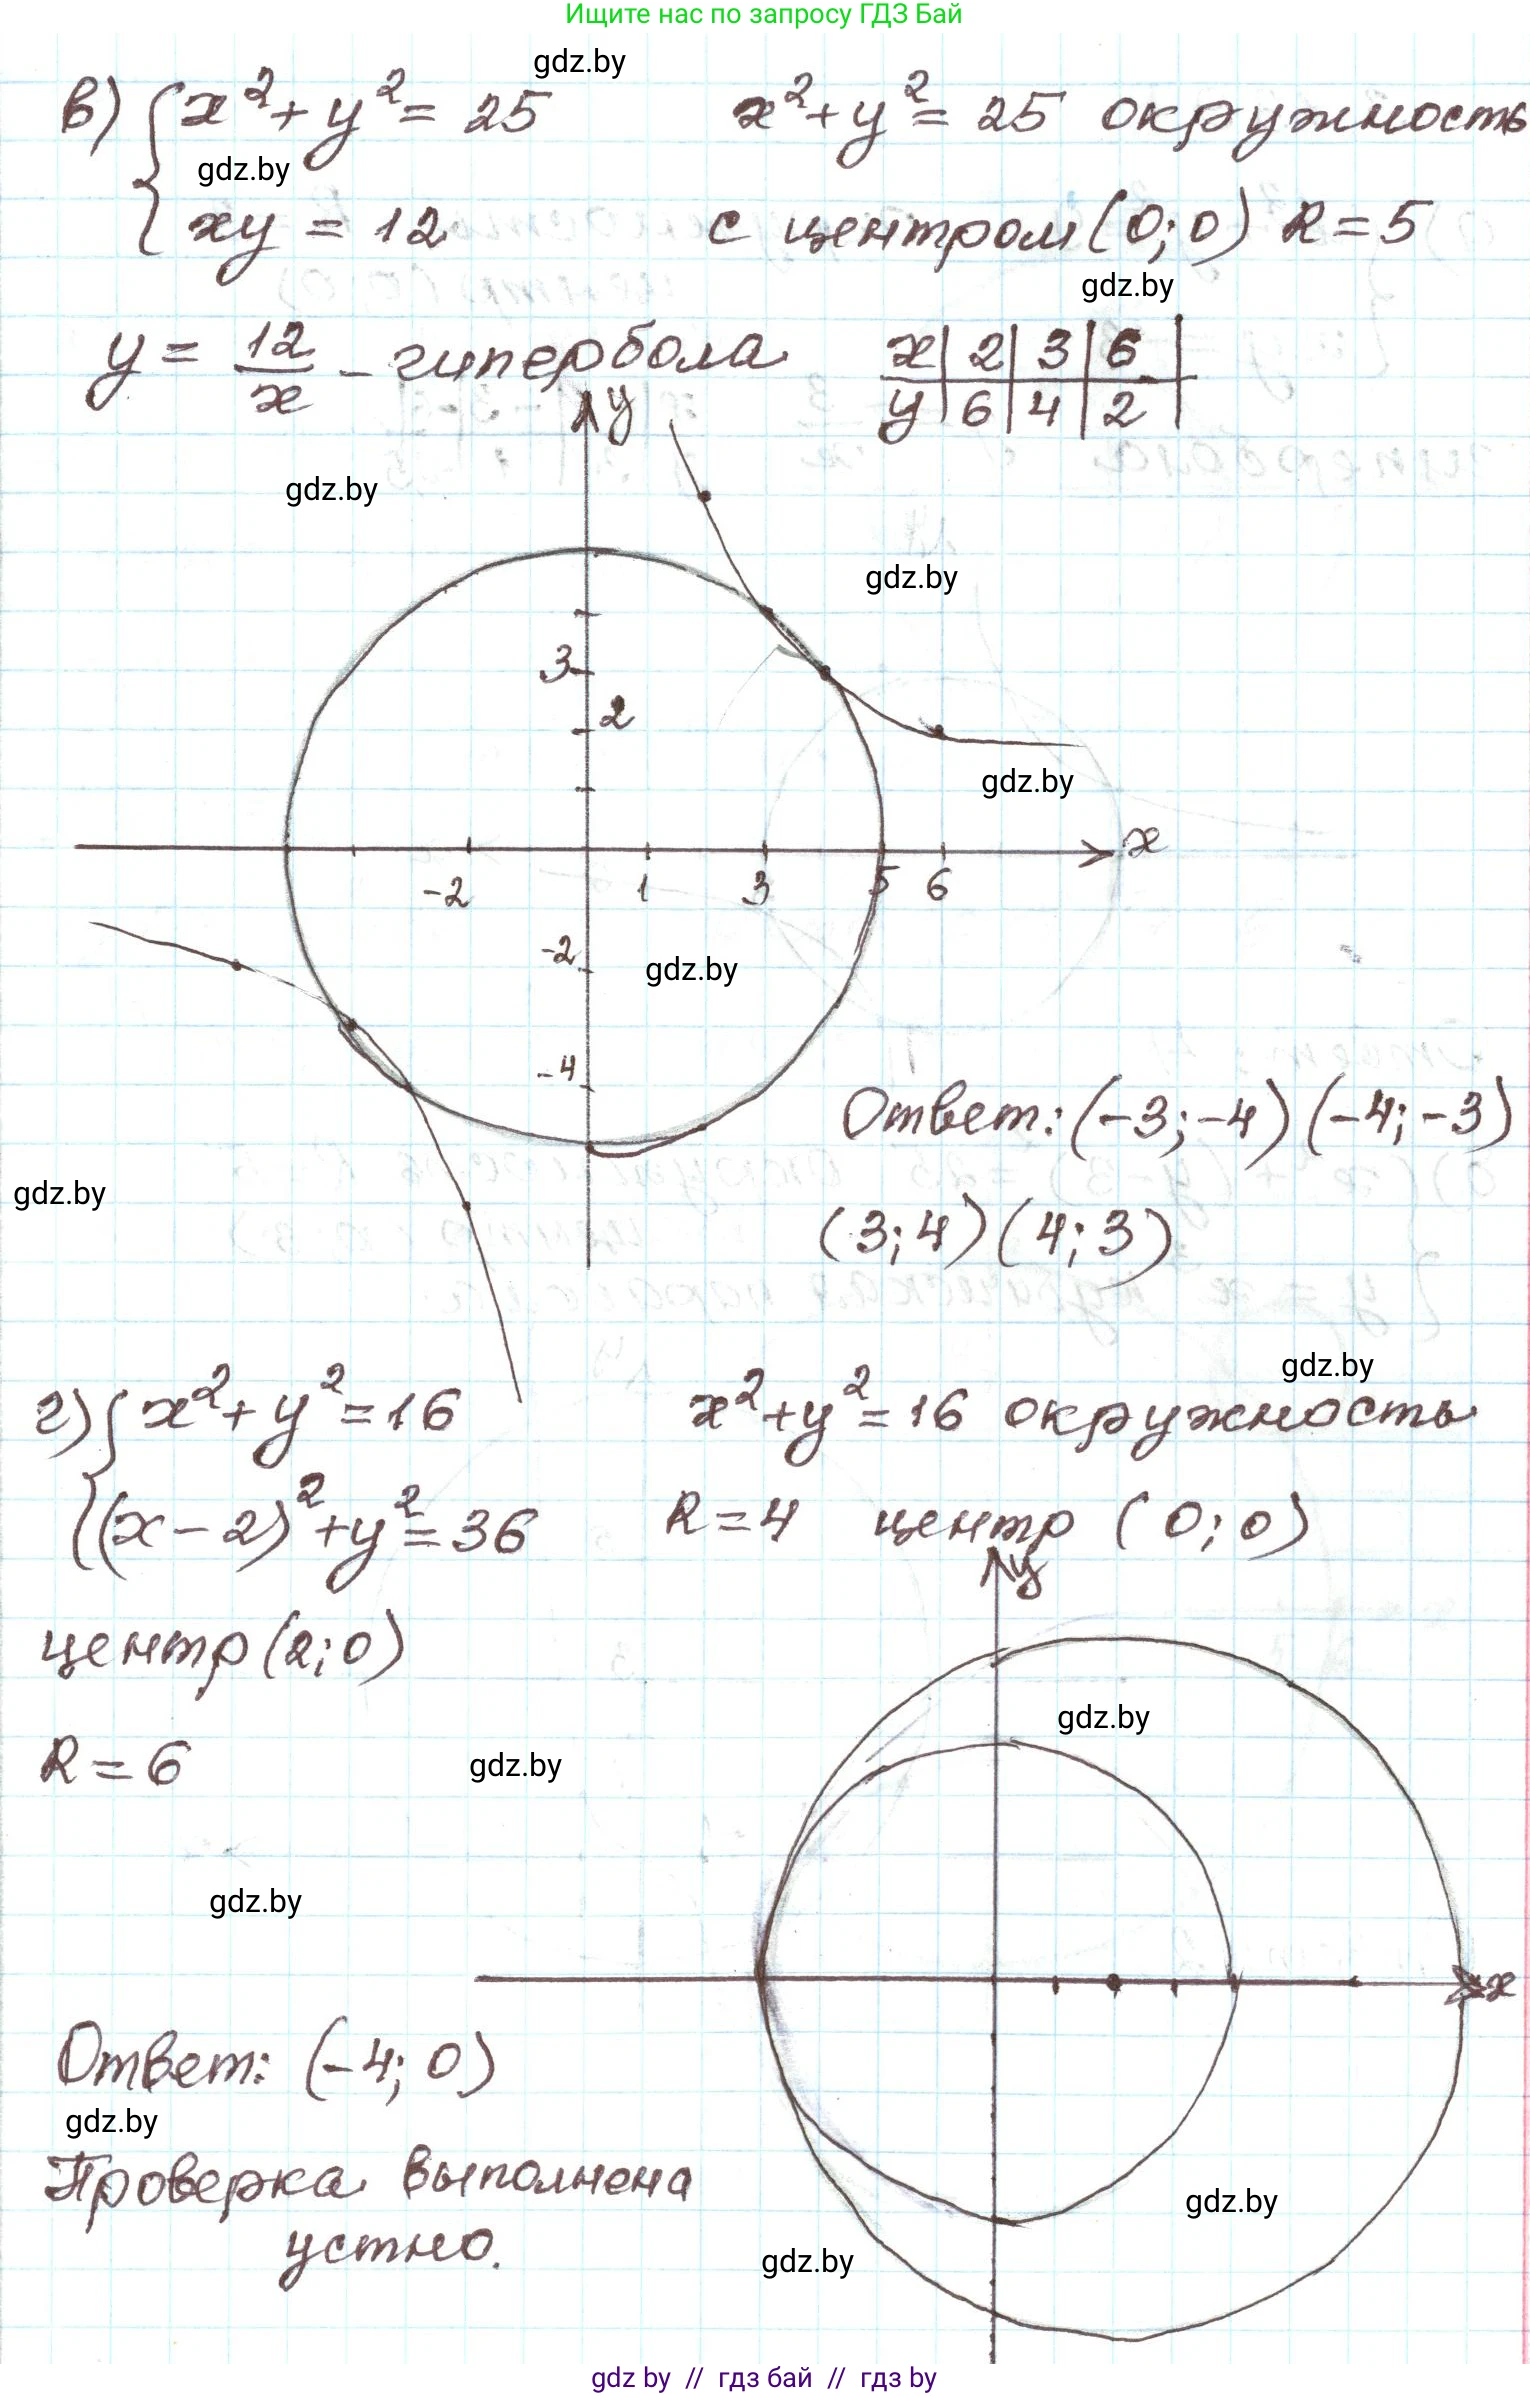 Ищите нас по запросу ГДЗ Бай
gdz.by
в) { x² + y² = 25    x² + y² = 25 окружность
gdz.by
xy = 12    с центром (0; 0) R = 5
gdz.by
y = 12/x - гипербола    x | 2 | 3 | 6 |
y | 6 | 4 | 2 |
y
gdz.by
gdz.by
3
2
gdz.by
x
-2 1 3 5 6
-2
gdz.by
-4
Ответ: (-3; -4) (-4; -3)
gdz.by
(3; 4) (4; 3)
gdz.by
г) { x² + y² = 16    x² + y² = 16 окружность
(x - 2)² + y² = 36    R = 4 центр (0; 0)
y
центр (2; 0)
gdz.by
R = 6
gdz.by
gdz.by
x
Ответ: (-4; 0)
gdz.by
Проверка выполнена
gdz.by
устно.
gdz.by
gdz by // гдз бай // гдз by